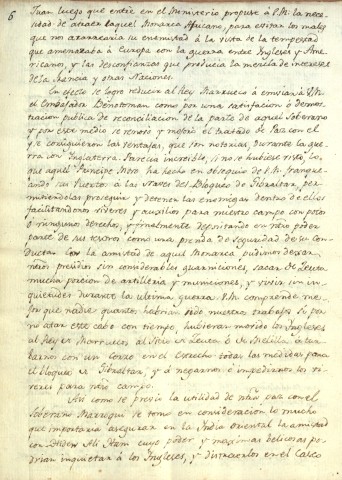 6
Luego que entré en el Ministerio propuse á V.M. la nece-
sidad de atraer a aquel Monarca Africano, para evitar los males
que nos acarrearia su enemistad á la vista de la tempestad
que amenazaba á Europa con la guerra entre Ingleses y Ame-
ricanos, y las desconfianzas que producia la mezcla de intereses
de la Francia y otras Naciones.
En efecto se logró reducir al Rey Marrueco á enviar á V.M.
el Embajador Benotoman como por una satisfacion ó demos-
tracion publica de reconciliacion de la parte de aquel Soberano
y por este medio se renovó y mejoró el tratado de Paz con el
y se consiguieron las ventajas, que son notorias, durante la gue-
rra con Inglaterra. Parecia increible, si no se hubiese visto, lo
que aquel Principe Moro ha hecho en obsequio de V.M. franque-
ando sus Puertos á las naves del Bloqueo de Gibraltar, per-
mitiendolas perseguir y detener las enemigas dentro de ellos
facilitandonos viveres y auxilios para nuestro campo con pocos
ó ningunos derechos, y finalmente depositando en nro poder
parte de sus tesoros como una prenda de seguridad de su con-
ducta. Con la amistad de aquel Monarca pudimos dexar
nros presidios sin considerables guarniciones, sacar de Ceuta
mucha porcion de artilleria y municiones, y vivir sin in-
quietudes durante la ultima guerra. V.M. comprende me-
jor que nadie quantos habrian sido nuestros trabajos si por
no atar este cabo con tiempo, hubieran movido los Ingleses
al Rey de Marruecos al sitio de Ceuta ó de Melilla, á tur-
barnos con un corso en el estrecho todas las medidas para
el bloqueo de Gibraltar, y á negarnos é impedirnos los vi-
veres para nro campo.
Asi como se previó la utilidad de ntra paz con el
Soberano Marroqui se tomó en consideracion lo mucho
que importaria asegurar en la India oriental la amistad
con Ali Kam cuyo poder y maximas belicosas po-
drian inquietar á los Ingleses, y distraerlos en el caso